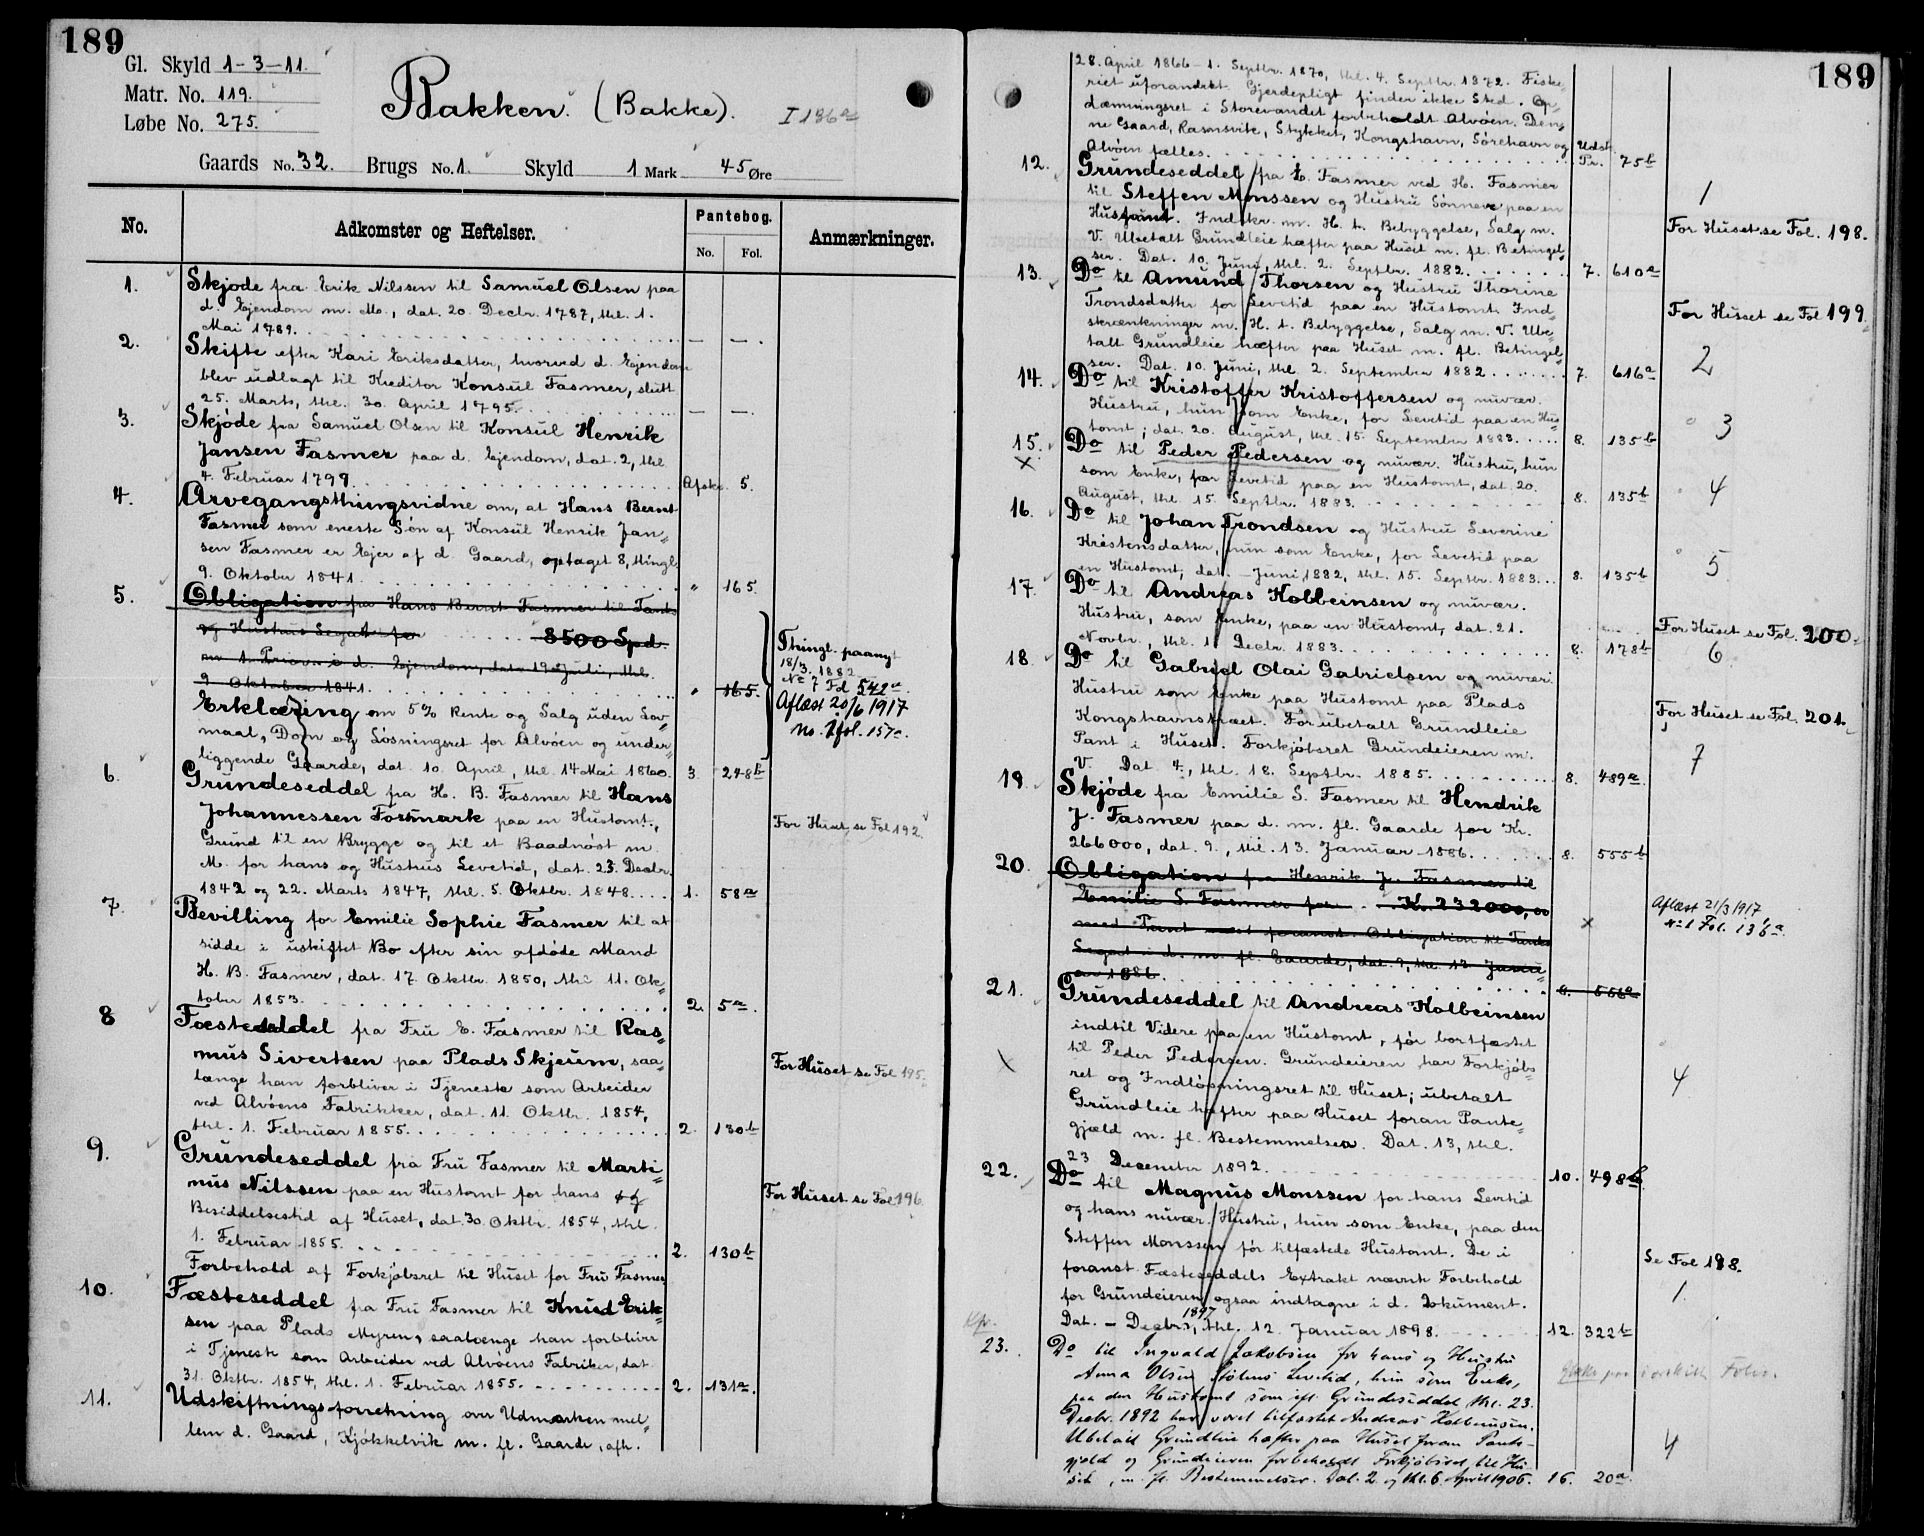 189
Gl. Skyld 1-3-11.
Matr. No. 119.
Løbe No. 275.
Bakken. (Bakke). I 186a
Gaards No. 32. Brugs No. 1. Skyld 1 Mark 45 Øre
No. Adkomster og Heftelser. Pantebog. Anmærkninger.
No. Fol.
1. Skjøde fra Erik Nilssen til Samuel Olsen paa
d. Ejendom m. Mo., dat. 20 Decbr. 1787, thl. 1.
Mai 1789. — —
2. Skifte efter Kari Eriksdatter, hvorved d. Ejendom
blev udlagt til Kreditor Konsul Fasmer, slutt.
25. Marts, thl. 30. April 1795. — —
3. Skjøde fra Samuel Olsen til Konsul Henrik
Jansen Fasmer paa d. Ejendom, dat. 2, thl.
4. Februar 1799. Afskr. 5.
4. Arvegangsthingsvidne om, at Hans Bernt
Fasmer som eneste Søn af Konsul Henrik Jan=
sen Fasmer er Ejer af d. Gaard, optaget 8, thingl.
9. Oktober 1841. " 165.
5. Obligation fra Hans Bernt Fasmer til Tanks
og Hustrus Legat for 8500 Spd.
m. 1. Prior. i d. Ejendom, dat. 19 Juli, thl.
9. Oktober 1841. " 165.
Thingl. paany
18/3 1882
No 7 Fol 542a.
Aflæst 20/6 1917
No. 1 fol. 157a.
Erklæring om 5% Rente og Salg uden Lov=
maal, Dom og Løsningsret for Alvøen og under=
liggende Gaarde, dat. 10. April, thl. 14 Mai 1860. 3. 248b
6. Grundeseddel fra H. B. Fasmer til Hans
Johannessen Formark paa en Hustomt,
Grund til en Brygge og til et Baadnøst m.
M. for hans og Hustrus Levetid, dat. 23. Decbr.
1842 og 22. Marts 1847, thl. 5. Oktbr. 1848. 1. 58a
For Huset se Fol 192.
7. Bevilling for Emilie Sophie Fasmer til at
sidde i uskiftet Bo efter sin afdøde Mand
H. B. Fasmer, dat. 17. Oktbr. 1850, thl. 11. Ok=
tober 1853. 2. 5a.
8 Fæsteseddel fra Fru E. Fasmer til Ras=
mus Sivertsen paa Plads Skjeum, saa=
længe han forbliver i Tjeneste som Arbeider
ved Alvøens Fabrikker, dat. 11. Oktbr. 1854,
thl. 1. Februar 1855. 2. 130b
For Huset se Fol 195.
9. Grundeseddel fra Fru Fasmer til Marti=
nus Nilssen paa en Hustomt for hans og
Besiddelsestid af Huset, dat. 30. Oktbr. 1854, thl.
1. Februar 1855. 2. 130b
For Huset se Fol 196.
Forbehold af Forkjøbsret til Huset for Fru Fasmer.
10. Fæsteseddel fra Fru Fasmer til Knud Erik=
sen paa Plads Myren, saalænge han forbliver
i Tjeneste som Arbeider ved Alvøens Fabriker, dat.
31. Oktbr. 1854, thl. 1. Februar 1855. 2. 131a.
11. Udskiftningsforretning over Udmarken mel=
lem d. Gaard, Kjøkkelvik m. fl. Gaarde, afh.
189
28. April 1866 - 1. Septbr. 1870, thl. 4. Septbr. 1872. Fiske=
riet uforandret. Gjerdepligt finder ikke Sted. Op=
dæmningsret i Storevandet forbeholdt Alvøen. Den=
ne Gaard, Rasmsvik, Stykket, Kongshavn, Sørehavn og
Alvøen fælles. Udsk. Pr. 75b
12. Grundeseddel fra E. Fasmer ved H. Fasmer
til Steffen Monssen og Hustru Sønneve paa en
Hustomt. Indskr. m. H. t. Bebyggelse, Salg m.
V. Ubetalt Grundleie hæfter paa Huset m. fl. Betingel=
ser. Dat. 10. Juni, thl. 2. Septbr. 1882. 7. 610a
1
For Huset se Fol. 198.
13. Do til Amund Thorsen og Hustru Thorine
Trondsdatter for Levetid paa en Hustomt. Ind=
skrænkninger m. H. t. Bebyggelse, Salg m. V. Ube=
talt Grundleie hæfter paa Huset m. fl. Betingel=
ser. Dat. 10. Juni, thl. 2. September 1882. 7. 616a
For Huset se Fol 199.
2
14. Do til Kristoffer Kristoffersen og nuvær.
Hustru, hun som Enke, for Levetid paa en Hus=
tomt; dat. 20. August, thl. 15. September 1883. 8. 135b
3
15. Do til Peder Pedersen og nuvær. Hustru, hun
X som Enke, for Levetid paa en Hustomt, dat. 20.
August, thl. 15. Septbr. 1883. 8. 135b
4
16. Do til Johan Trondsen og Hustru Severine
Kristensdatter, hun som Enke, for Levetid paa
en Hustomt, dat. — Juni 1882, thl. 15. Septbr. 1883. 8. 135b
5
17. Do til Andreas Kolbeinsen og nuvær.
Hustru, som Enke, paa en Hustomt, dat. 21.
Novbr., thl. 1. Decbr. 1883. 8. 178b
For Huset se Fol. 200.
6
18. Do til Gabriel Olai Gabrielsen og nuvær.
Hustru som Enke paa Hustomt paa Plads
Kongshavnstræet. For ubetalt Grundleie
Pant i Huset. Forkjøbsret Grundeieren m.
V. Dat. 4., thl. 18. Septbr. 1885. 8. 489a.
For Huset se Fol. 201.
7
19. Skjøde fra Emilie S. Fasmer til Hendrik
J. Fasmer paa d. m. fl. Gaarde for Kr.
266000, dat. 9., thl. 13. Januar 1886. 8. 555b
20. Obligation fra Henrik J. Fasmer til
Emilie S. Fasmer for Kr. 232000,00
med Pant næst foranst. Obligation til Tanks
Legat i d. m. fl. Gaarde, dat. 9, thl. 13. Janu=
ar 1886. 8. 556a
X
Aflæst 21/3 1917
No 1 Fol. 136a.
21. Grundeseddel til Andreas Kolbeinsen
indtil Videre paa en Hustomt, før bortfæstet
X til Peder Pedersen. Grundeieren har Forkjøbs=
ret og Indløsningsret til Huset; ubetalt
Grundleie hæfter paa Huset foran Pante=
gjæld m. fl. Bestemmelser. Dat. 13, thl.
23 December 1892. 10. 498b.
4
22. Do til Magnus Monssen for hans Levetid
og hans nuvær. Hustru, hun som Enke, paa den
Steffen Monssen før tilfæstede Hustomt. De i
foranst. Fæsteseddels Extrakt nævnte Forbehold
for Grundeieren ogsaa indtagne i d. Dokument.
Dat. — Decbr. 1897, thl. 12. Januar 1898. 12. 322b
Se Fol 198.
1.
23. Do til Ingvald Jakobsen for hans og Hustru
Anna Olsine Kølens Levetid, hun som Enke,
paa den Hustomt som efl. Grundeseddel thl. 23.
Decbr. 1892 har været tilfæstet Andreas Kolbeinsen.
Ubetalt Grundleie hæfter paa Huset foran Pante=
gjæld og Grundeieren forbeholdt Forkjøbsret til Hu=
set, m. fl. Bestemmelser. Dat. 2. og thl. 6. April 1906. 16. 20a.
4